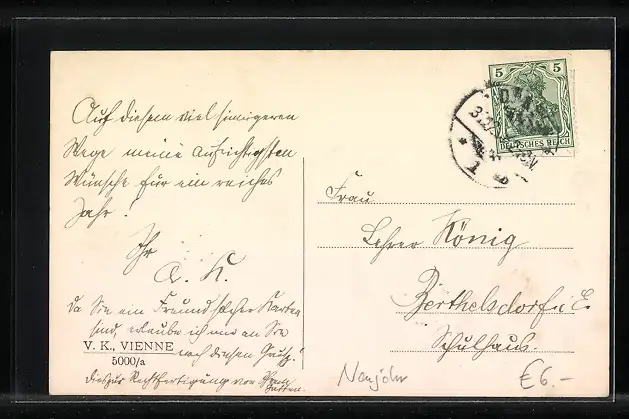 Auf diesem viel sinnigeren
Wege meine aufrichtigsten
Wünsche für ein reiches
Jahr!
Ihr
A. K.
Da Sie ein Freund solcher Karten
sind, erlaube ich mir an Sie
noch diesen Gruß!
dies zur Rechtfertigung von
V. K., VIENNE
5000/a
5 5
DEUTSCHES REICH
Frau
Lehrer König
Berthelsdorf i. E.
Schulhaus.
Neujahr
€6.-